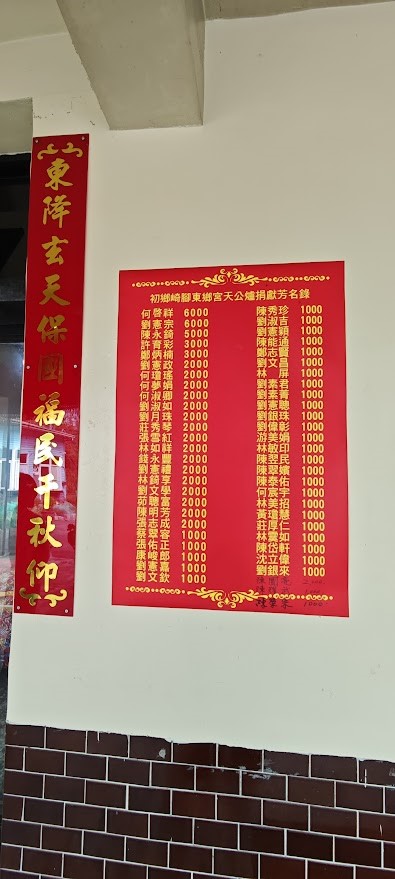 東降玄天保國福民千秋仰
初鄉崎腳東鄉宮天公爐捐獻芳名錄
何啓祥 6000
劉憲宗 6000
陳永錡 5000
許育彩 3000
鄭炳楠 3000
劉憲政 2000
何瓊瑤 2000
何夢娟 2000
劉淑卿 2000
劉淑如 2000
劉月珠 2000
莊秀琴 2000
張雲紅 2000
林如祥 2000
錢永豐 2000
劉憲禮 2000
林錡享 2000
劉文學 2000
茆聰富 2000
陳明芳 2000
張志成 2000
蔡翠容 1000
張佑正 1000
康峻郎 1000
劉憲嘉 1000
劉文欽 1000
陳秀珍 1000
劉淑吉 1000
劉憲穎 1000
陳能通 1000
鄭志賢 1000
劉文昌 1000
林屏 1000
劉素君 1000
劉素菁 1000
劉憲聰 1000
劉銀珠 1000
劉偉彰 1000
游美娟 1000
林敏印 1000
陳翌民 1000
陳翠嬪 1000
陳泰佑 1000
何宸宇 1000
林美招 1000
黃瓊慧 1000
莊厚仁 1000
林靈如 1000
陳岱軒 1000
沈立偉 1000
劉銀來 1000